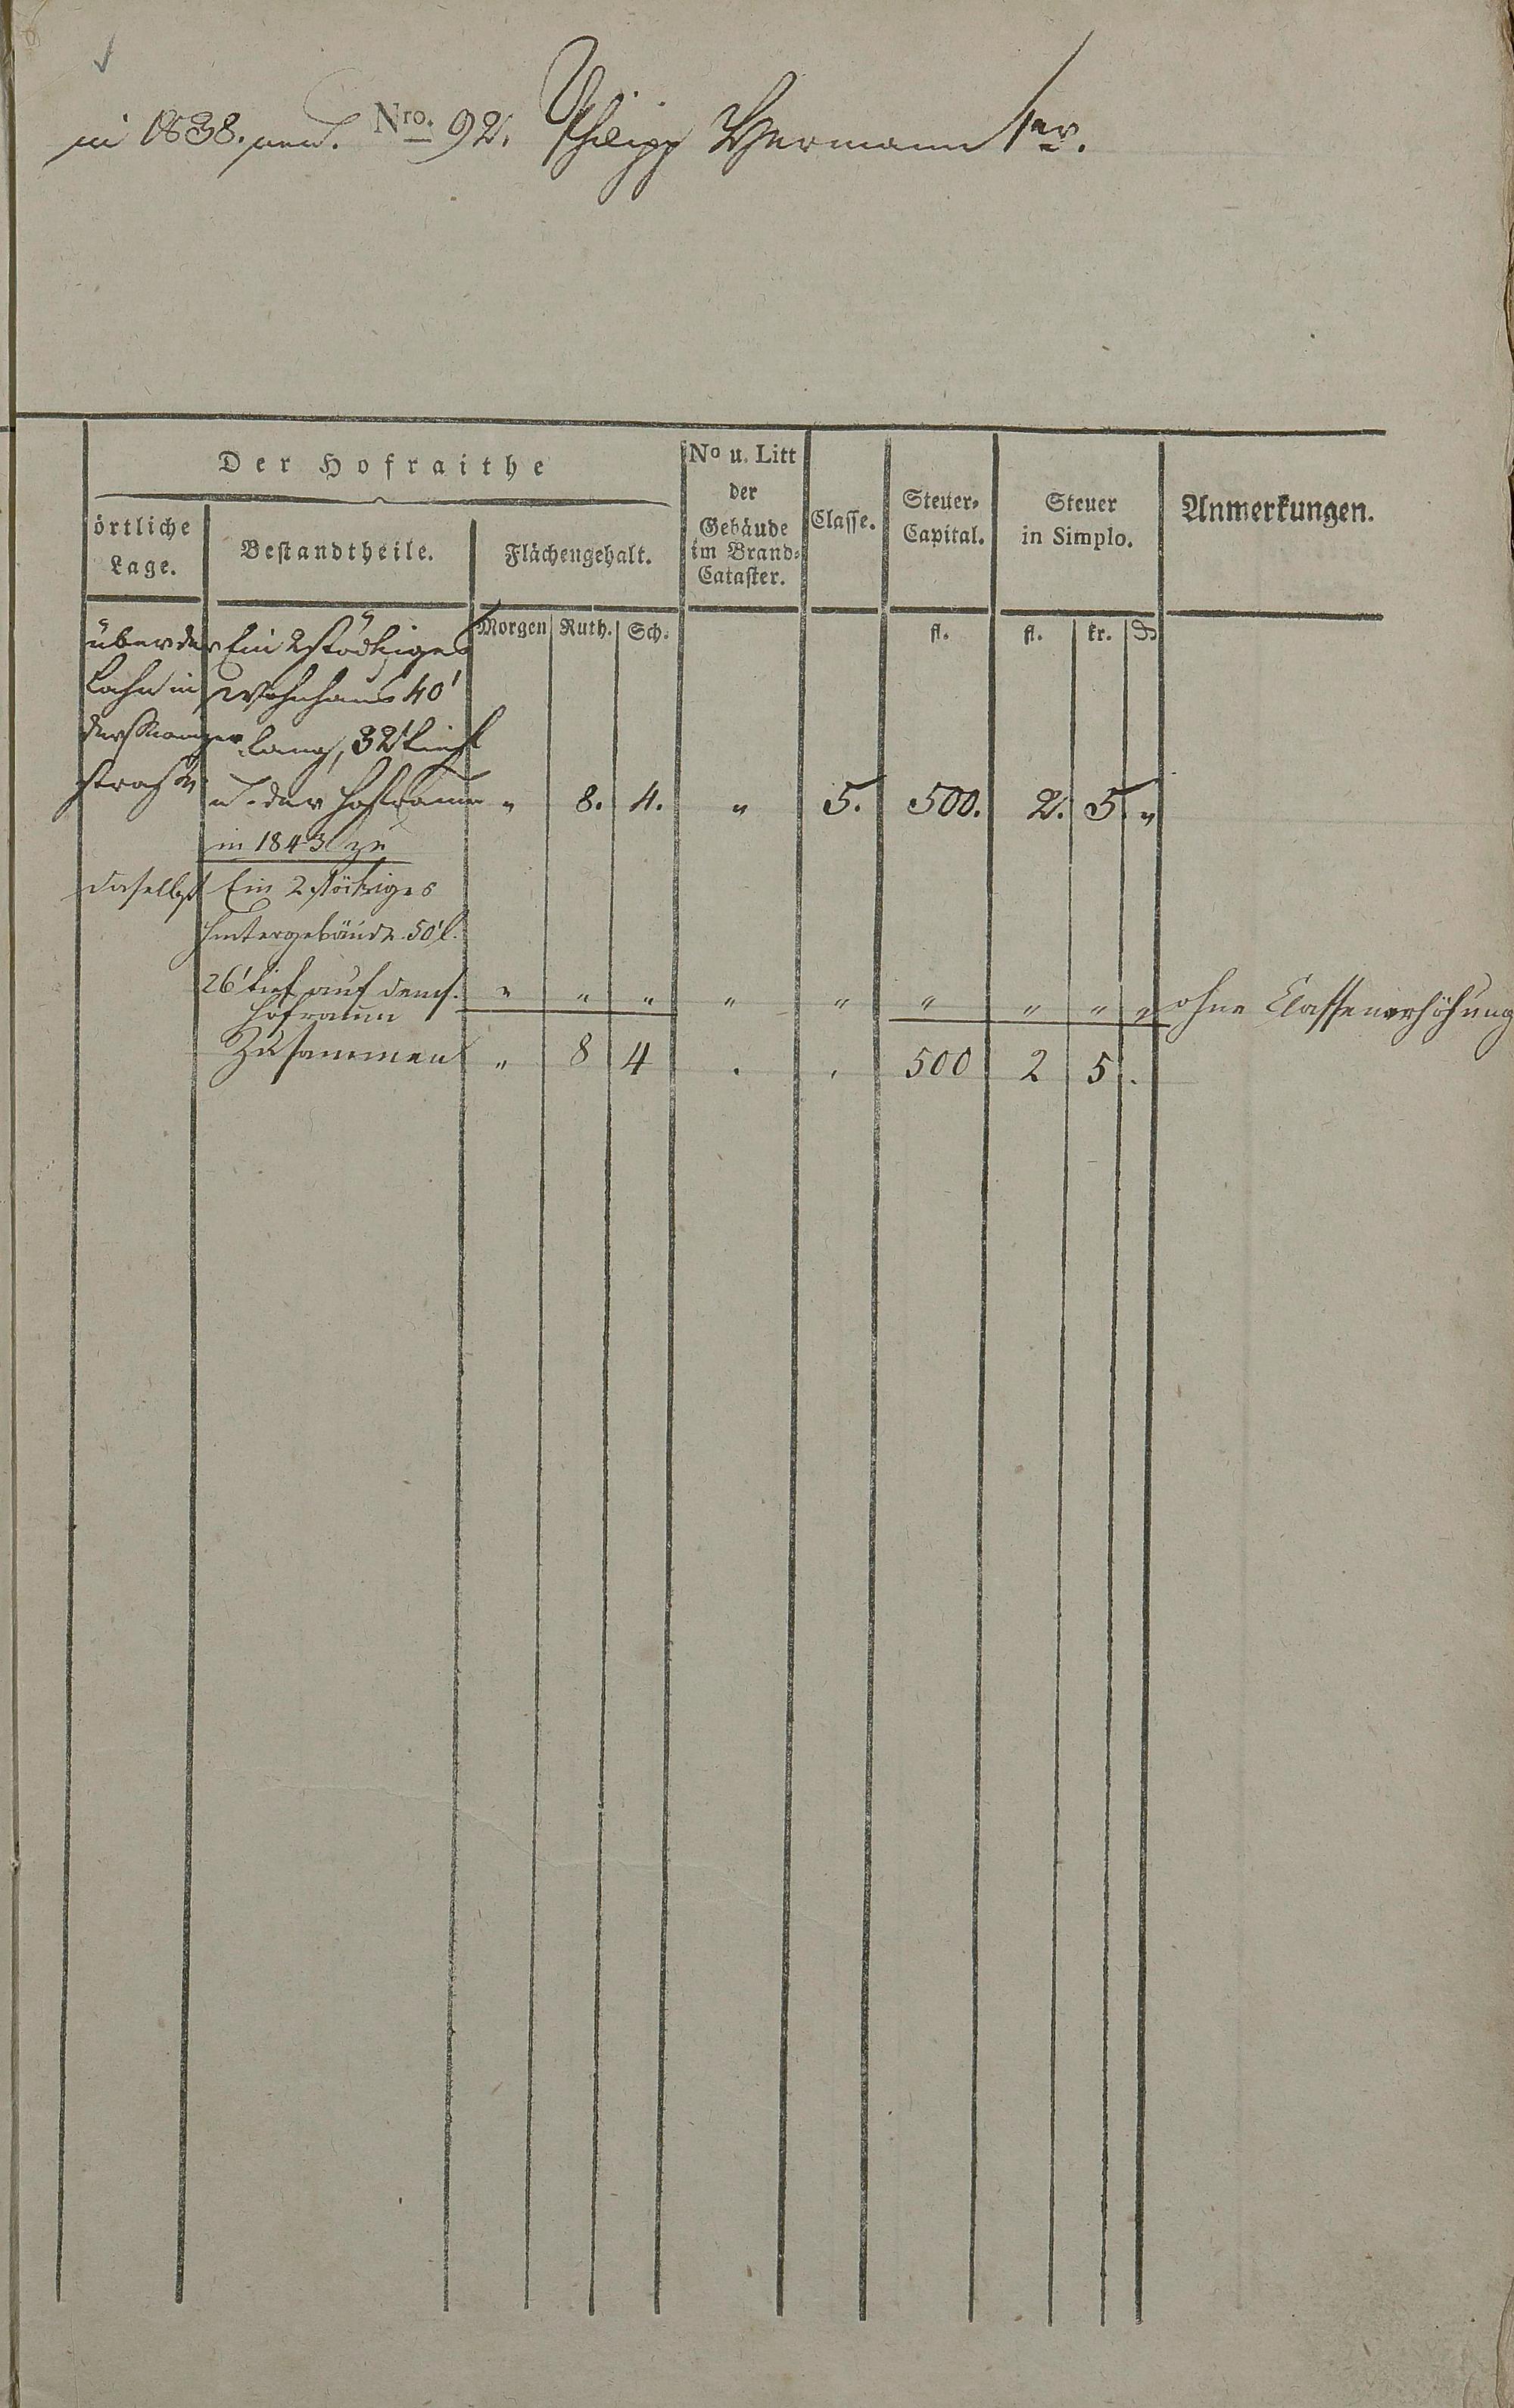 in 1838. neu. Nro. 92. Philipp Hermann 1er.
Der Hofraithe
No u. Litt der Gebäude im Brand-Cataster.
Classe.
Steuer-Capital.
Steuer in Simplo.
Anmerkungen.
örtliche Lage.
Bestandtheile.
Flächengehalt.
Morgen Ruth. Sch. fl. fl. kr. ₰
über der Ein 2stöckiges
Lahn in Wohnhaus 40'
der lang, 32' tief
straße u. der Hofraum " 8. 4. " 5. 500. 2. 5. "
in 1843 zu
daselbst Ein 2 stöckiges
Hintergebäude 50' l.
26' tief auf dems. " " " " " " " " " ohne Classenerhöhung
Hofraum
Zusammen " 8 4 . . 500 2 5 .